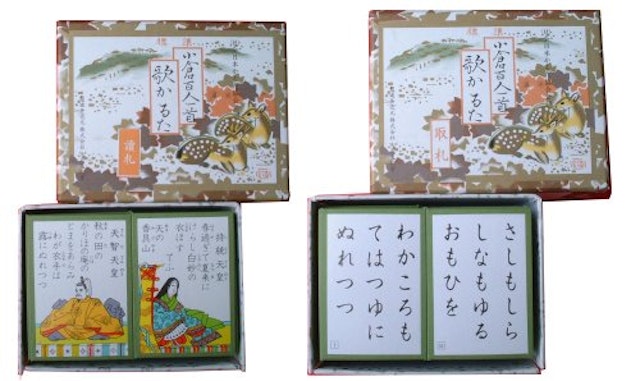 標準
小倉百人一首
歌かるた
讀札
標準
小倉百人一首
歌かるた
取札
持統天皇
春過ぎて夏来に
けらし白妙の
衣ほすてふ
天の
香具山
天智天皇
秋の田の
かりほの庵の
とまをあらみ
わが衣手は
露にぬれつつ
さしもしら
しなもゆる
おもひを
わかころも
てはつゆに
ぬれつつ